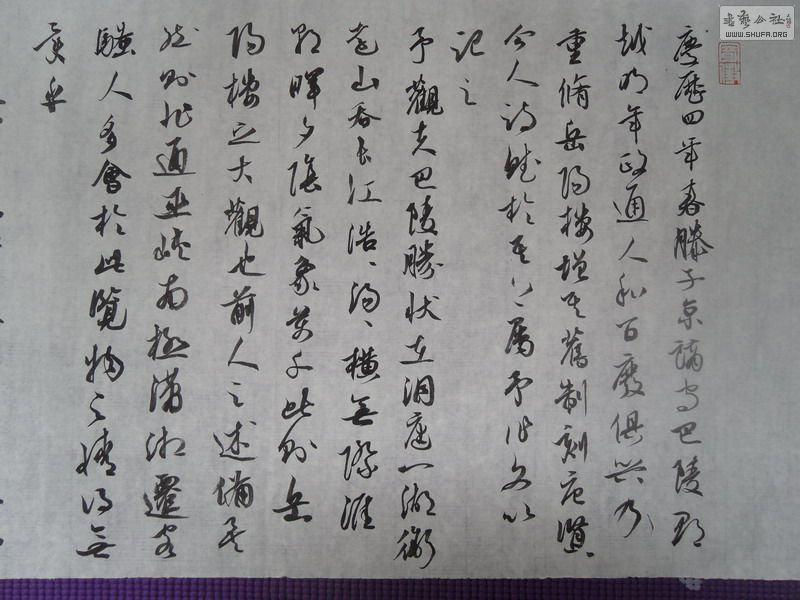 慶歷四年春滕子京謫守巴陵郡
越明年政通人和百廢俱興乃
重脩岳陽樓增其舊制刻唐賢
今人詩賦於其上屬予作文以
記之
予觀夫巴陵勝狀在洞庭一湖銜
遠山吞長江浩浩湯湯橫無際涯
朝暉夕陰氣象萬千此則岳
陽樓之大觀也前人之述備矣
然則北通巫峽南極瀟湘遷客
騷人多會於此覽物之情得無
異乎
書藝公社
WWW.SHUFA.ORG